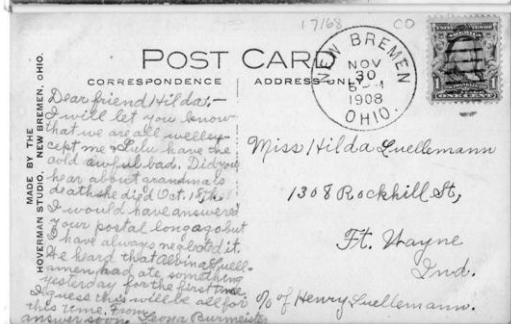 17/68 CO
POST CARD
CORRESPONDENCE
ADDRESS ONLY
NEW BREMEN
NOV
30
1908
OHIO.
MADE BY THE
HOVERMAN STUDIO, NEW BREMEN, OHIO.
Dear friend Hilda:-
I will let you know
that we are all well ex-
cept me & Lulu have the
cold awful bad. Did you
hear about grandma's
death she died Oct. 18th.
I would have answered
your postal long ago but
I have always neglected it.
We heard that Alvina Luell-
amen had ate something
yesterday for the first time.
I guess this will be all for
this time. From
answer soon. Leona Burmeister
Miss Hilda Luellemann
1308 Rockhill St,
Ft. Wayne
Ind.
c/o of Henry Luellemann.